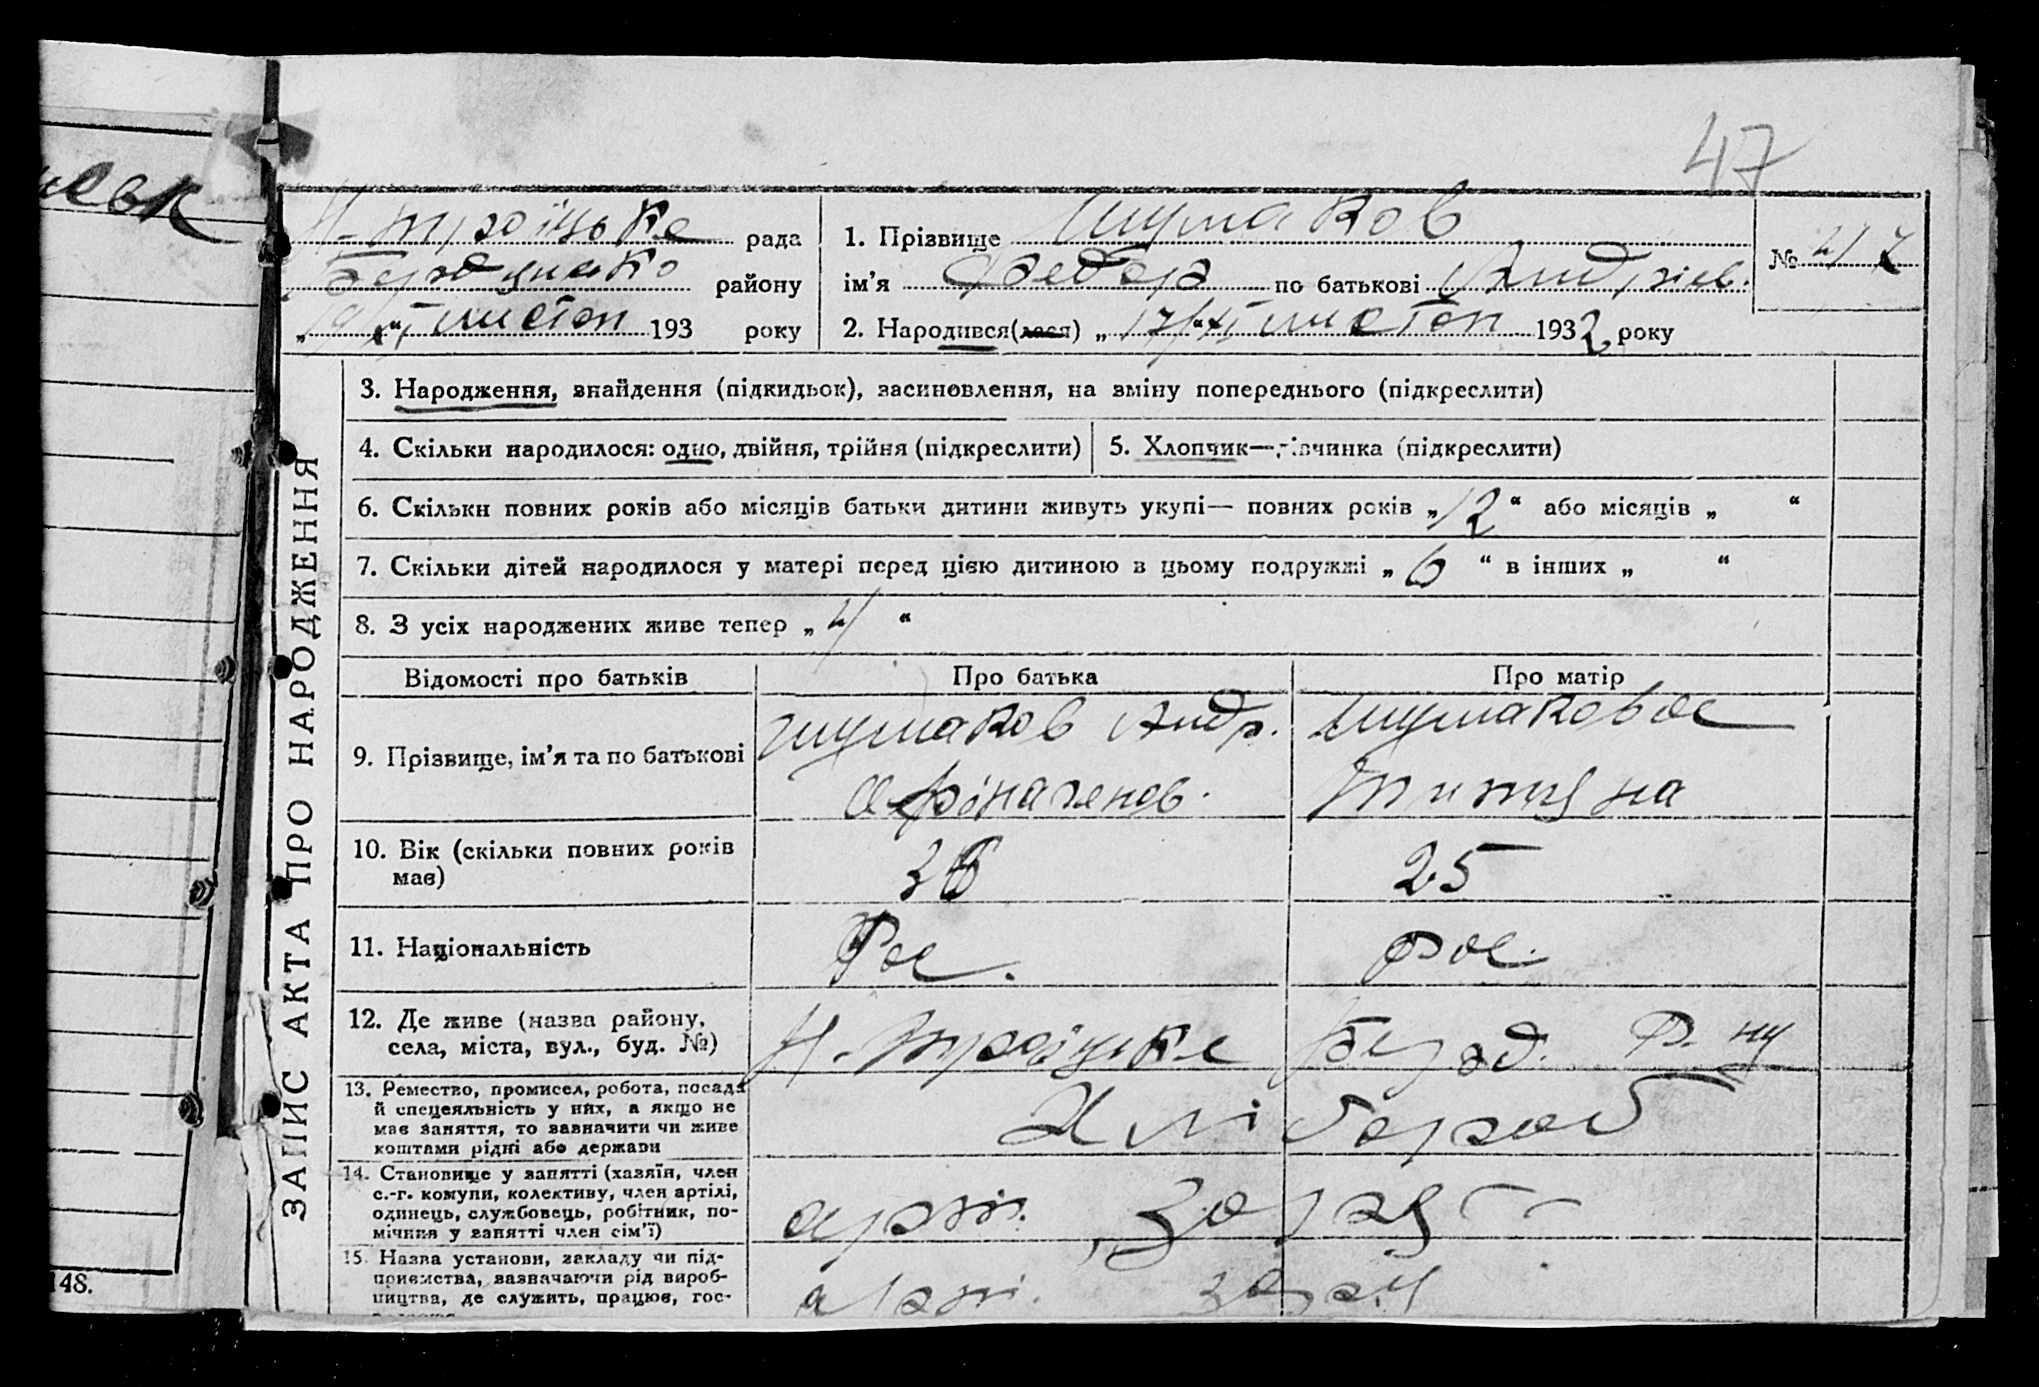 47
Н-Троїцьке рада
1. Прізвище Шумаков
№ 47
Бердянсько району
ім'я Федор по батькові Андрієв.
19/XI листоп 193 року
2. Народився(лася) „17/XI листоп 1932 року
ЗАПИС АКТА ПРО НАРОДЖЕННЯ
3. Народження, знайдення (підкидьок), засиновлення, на зміну попереднього (підкреслити)
4. Скільки народилося: одно, двійня, трійня (підкреслити)
5. Хлопчик—дівчинка (підкреслити)
6. Скільки повних років або місяців батьки дитини живуть укупі— повних років „12“ або місяців „ “
7. Скільки дітей народилося у матері перед цією дитиною в цьому подружжі „6“ в інших „ “
8. З усіх народжених живе тепер „4“
Відомості про батьків
Про батька
Про матір
9. Прізвище, ім'я та по батькові
Шумаков Андр.
Шумакова
10. Вік (скільки повних років
має)
36
25
11. Національність
Рос.
рос.
12. Де живе (назва району,
села, міста, вул., буд. №)
Н-Троїцьке Берд. Р-ну
13. Ремество, промисел, робота, посада
й спецеяльність у них, а якщо не
має заняття, то зазначити чи живе
коштами рідні або держави
Хлібороб
14. Становище у занятті (хазяїн, член
с.-г. комуни, колективу, член артілі,
одинець, службовець, робітник, по-
мічник у занятті член сім'ї)
арт. „Зоря
15. Назва установи, закладу чи під-
приємства, зазначаючи рід вироб-
ництва, де служить, працює, гос-
арт. Зоря
148.